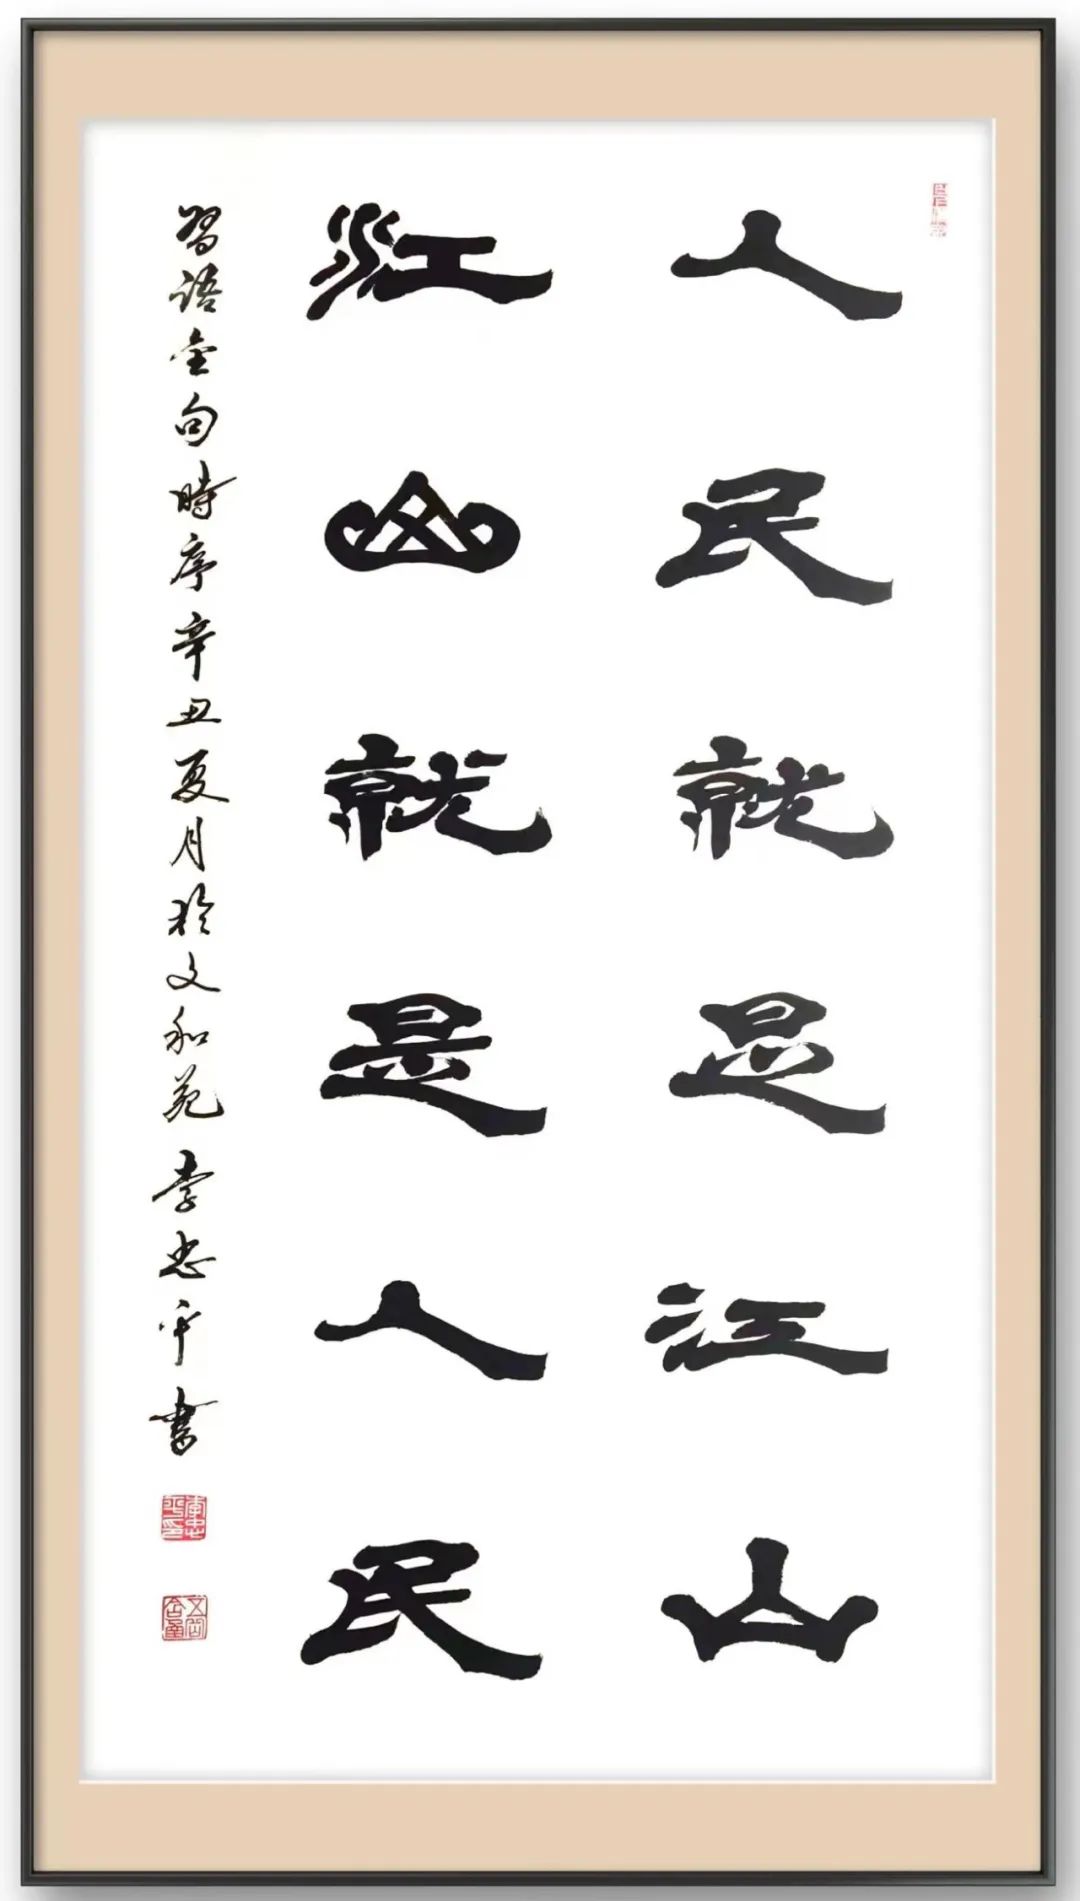 人民就是江山
江山就是人民
習语金句時序辛丑夏月於文和苑李忠平書
李忠平印